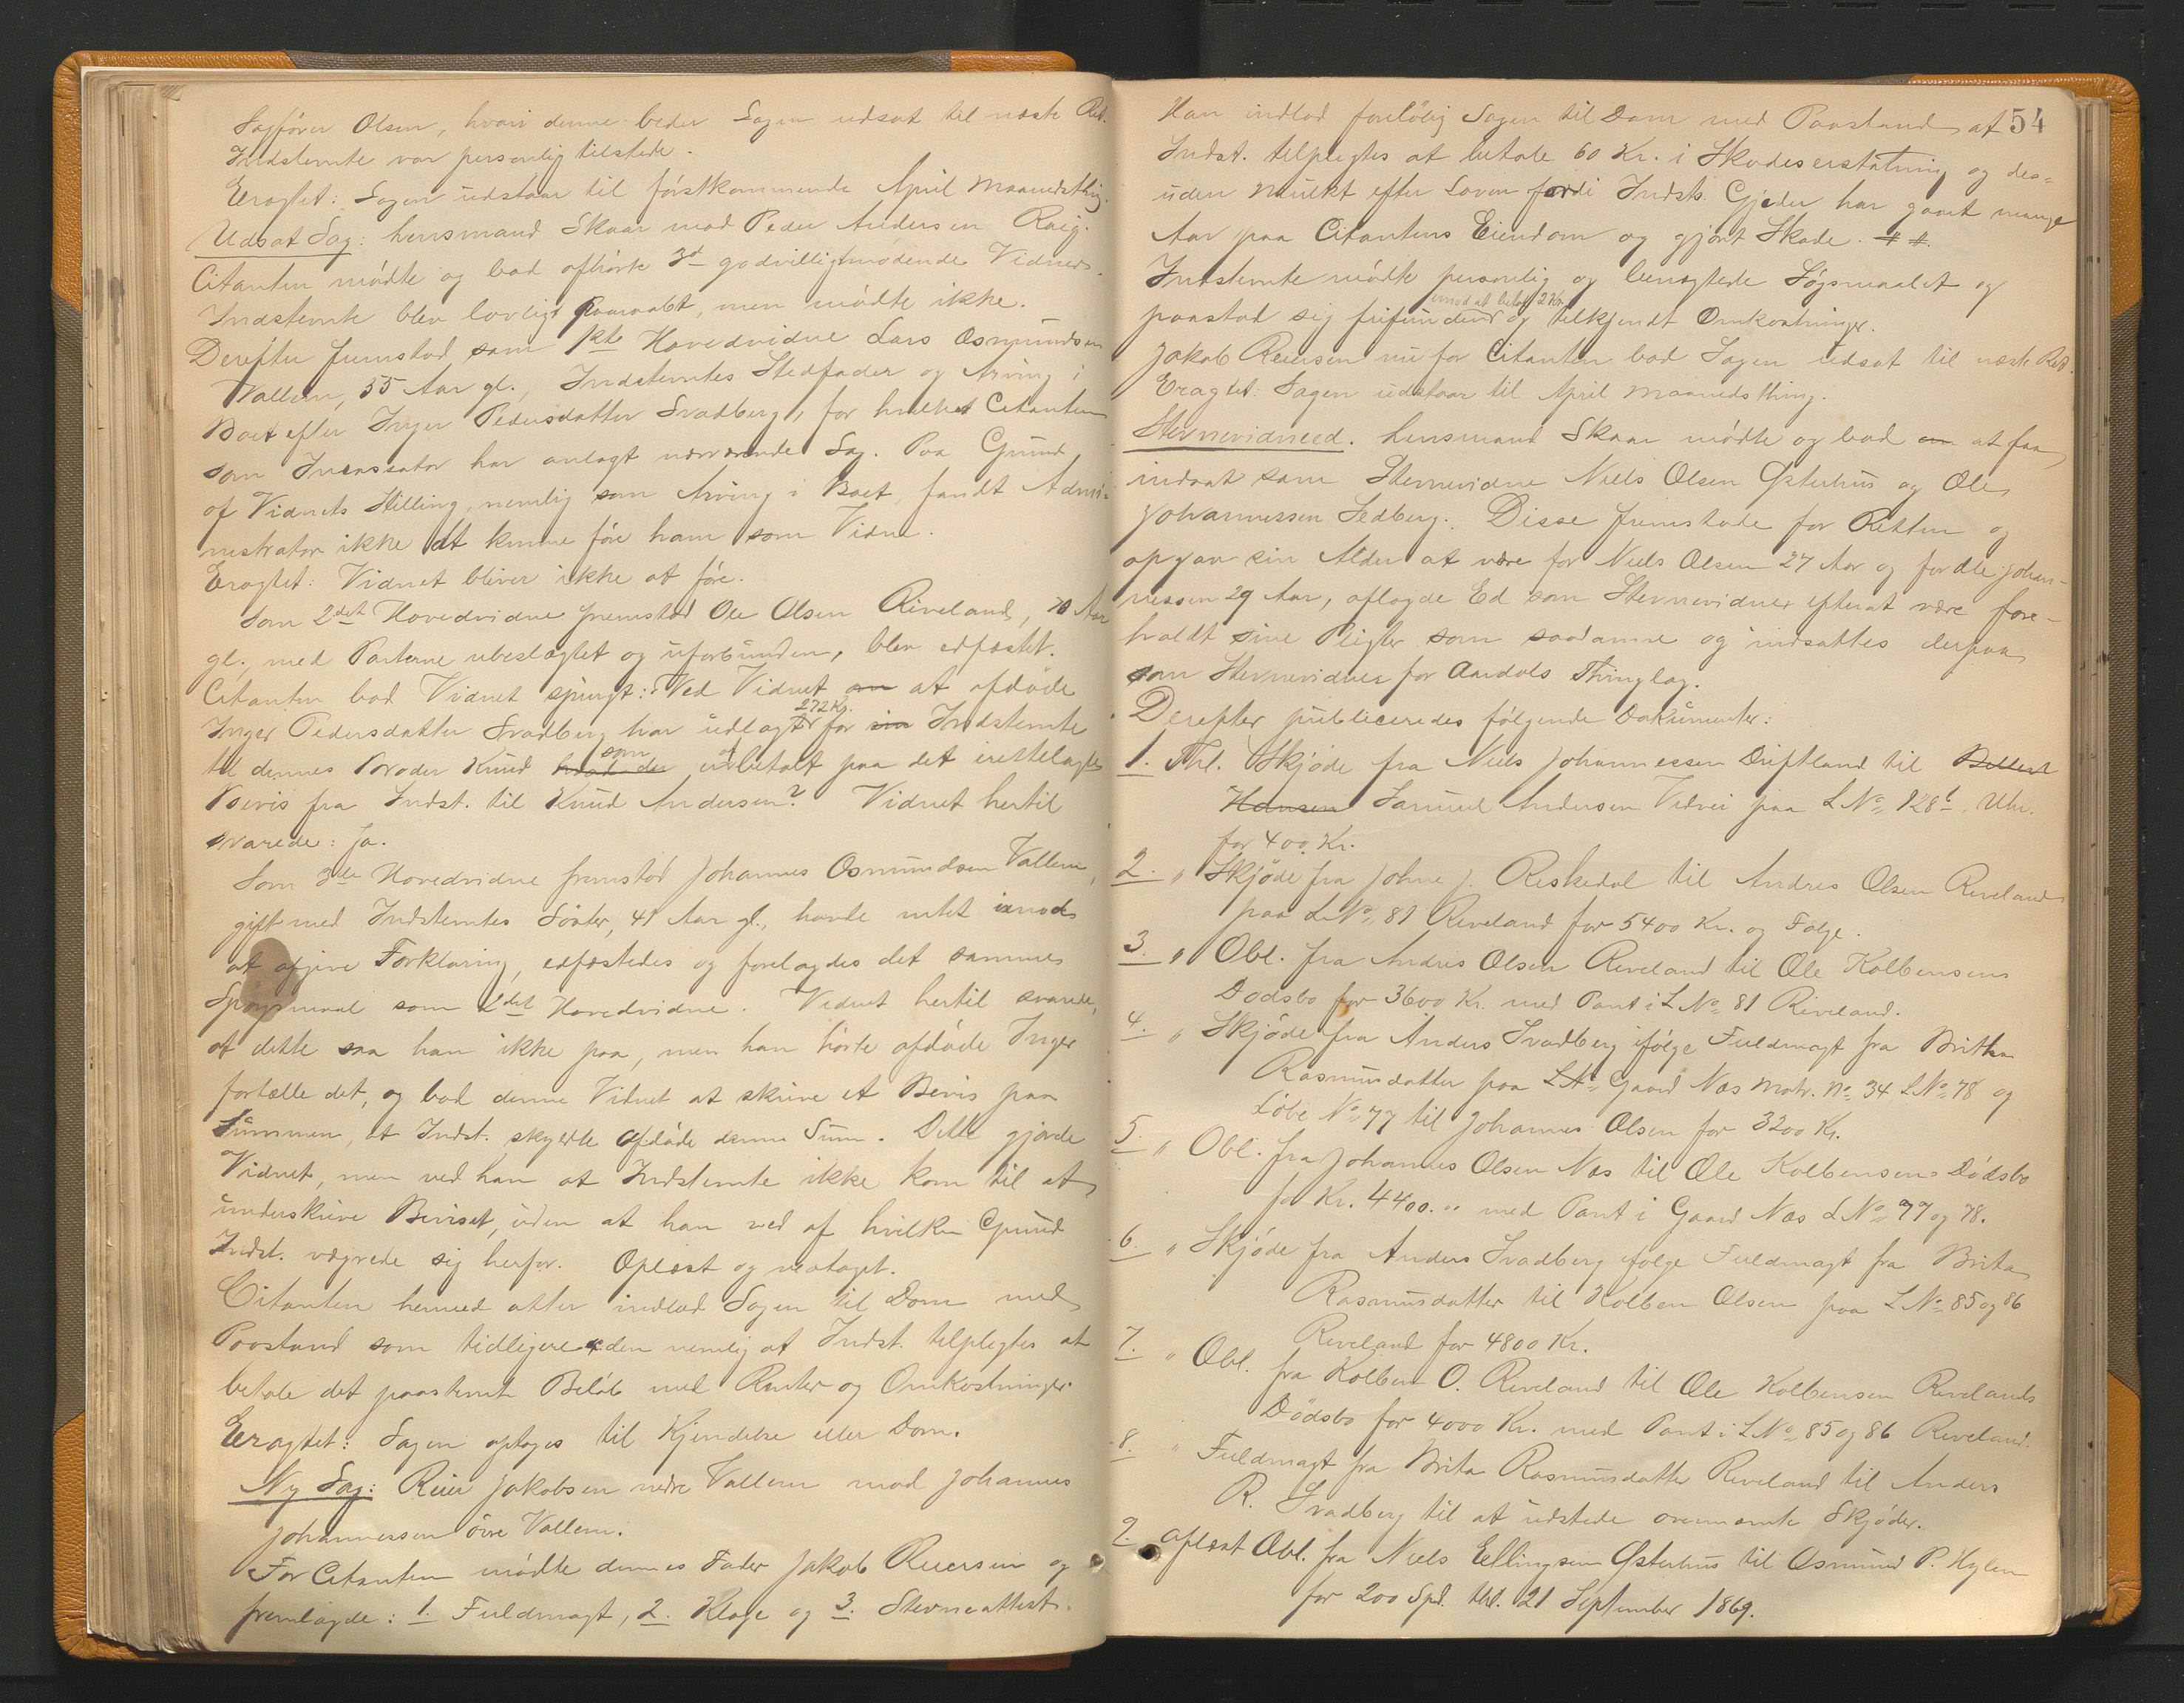 Sagfører Olsen, hvori denne beder Sagen udsat til næste Ret.
Indstemte var personlig tilstede.
Eragtet: Sagen udstaar til førstkommende April Maanedsthing.
Udsat Sag: Lensmand Skaar mod Peder Andersen Røig.
Citanten mødte og bad afhørte 3d godvilligmødende Vidner.
Indstemte blev lovligt paaraabt, men mødte ikke.
Derefter fremstod som 1ste Hovedvidne Lars Osmundsen
Vallem, 55 Aar gl., Indstemtes Stedfader og Arving i
Boet efter Inger Pedersdatter Svadberg, for hvilket Citanten
som Incassator har anlagt nærværende Sag. Paa Grund
af Vidnets Stilling, nemlig som Arving i Boet, fandt Admi-
nistrator ikke at kunne føre ham som Vidne.
Eragtet: Vidnet bliver ikke at føre.
Som 2det Hovedvidne fremstod Ole Olsen Riveland, 70 Aar
gl., med Parterne ubeslægtet og uforbunden, blev edfæstet.
Citanten bad Vidnet spurgt: Ved Vidnet om at afdøde
Inger Pedersdatter Svadberg har udlagt 272 Kr. for sin Indstemte
til dennes Broder Knud hvad der som er ubetalt paa det irettelagte
Bevis fra Indst. til Knud Andersen? Vidnet hertil
svarede: Ja.
Som 3die Hovedvidne fremstod Johannes Osmundsen Vallem,
gift med Indstemtes Søster, 41 Aar gl., havde intet imod
at afgive Forklaring, edfæstedes og forelagdes det samme
Spørgsmaal som 2det Hovedvidne. Vidnet hertil svarede,
at dette saa han ikke paa, men han hørte afdøde Inger
fortælle det, og bad denne Vidnet at skrive et Bevis paa
Summen, at Indst. skyldte afdøde denne Sum. Dette gjorde
Vidnet, men ved han at Indstemte ikke kom til at
underskrive Beviset, uden at han ved af hvilken Grund
Indst. vægrede sig herfor. Oplæst og vedtaget.
Citanten hermed atter indlod Sagen til Dom med
Paastand som tidligere den nemlig at Indst. tilpligtes at
betale det paastemte Beløb med Renter og Omkostninger.
Eragtet: Sagen optages til Kjendelse eller Dom.
Ny Sag: Reier Jakobsen nedre Vallem mod Johannes
Johannessen øvre Vallem.
For Citanten mødte dennes Fader Jakob Reiersen og
fremlagde: 1. Fuldmagt, 2. Klage og 3. Stevneattest.
54
Han indlod foreløbig Sagen til Dom med Paastand at
Indst. tilpligtes at betale 60 Kr. i Skadeserstatning og des-
uden Mulkt efter Loven fordi Indsts. Gjeder har gaaet mange
Aar paa Citantens Eiendom og gjørt Skade. # #.
Indstemte mødte personlig og benægtede Søgsmaalet og
paastod sig frifunden imod at betale 2 Kr. og tilkjendt Omkostninger.
Jakob Reiersen nu for Citanten bad Sagen udsat til næste Ret.
Eragtet: Sagen udstaar til April Maanedsthing.
Stevnevidneed. Lensmand Skaar mødte og bad om at faa
indsat som Stevnevidne Niels Olsen Østerhus og Ole
Johannessen Sedberg. Disse fremstode for Retten og
opgav sin Alder at være for Niels Olsen 27 Aar og for Ole Johan-
nessen 29 Aar, aflagde Ed som Stevnevidner efterat være fore-
holdt sine Pligter som saadanne og indsattes derpaa
som Stevnevidner for Aardals Thinglag.
Derefter publiceredes følgende Dokumenter:
1. Thl. Skjøde fra Niels Johannessen Døiftland til Bellest
Hansen Samuel Andersen Vidvei paa L No 128b Uhr.
for 400 Kr.
2. " Skjøde fra Johne J. Reskedal til Andres Olsen Riveland
paa L No 81 Riveland for 5400 Kr. og Følge.
3. " Obl. fra Andres Olsen Riveland til Ole Kolbensens
Dødsbo for 3600 Kr. med Pant i L No 81 Riveland.
4. " Skjøde fra Anders Svadberg ifølge Fuldmagt fra Britha
Rasmusdatter paa L No Gaard Næs Matr. No 34, L No 78 og
Løbe No 77 til Johannes Olsen for 3200 Kr.
5. " Obl. fra Johannes Olsen Næs til Ole Kolbensens Dødsbo
for Kr. 4400.00 med Pant i Gaard Næs L No 77 og 78.
6. " Skjøde fra Anders Svadberg ifølge Fuldmagt fra Brita
Rasmusdatter til Kolben Olsen paa L No 85 og 86
Riveland for 4800 Kr.
7. " Obl. fra Kolben O. Riveland til Ole Kolbensen Rivelands
Dødsbo for 4000 Kr. med Pant i L No 85 og 86 Riveland.
8. " Fuldmagt fra Brita Rasmusdatter Riveland til Anders
R. Svadberg til at udstede ovennævnte Skjøder.
9. Aflæst Obl. fra Niels Ellingsen Østerhus til Osmund P. Hylen
for 200 Spd. thl. 21 September 1869.